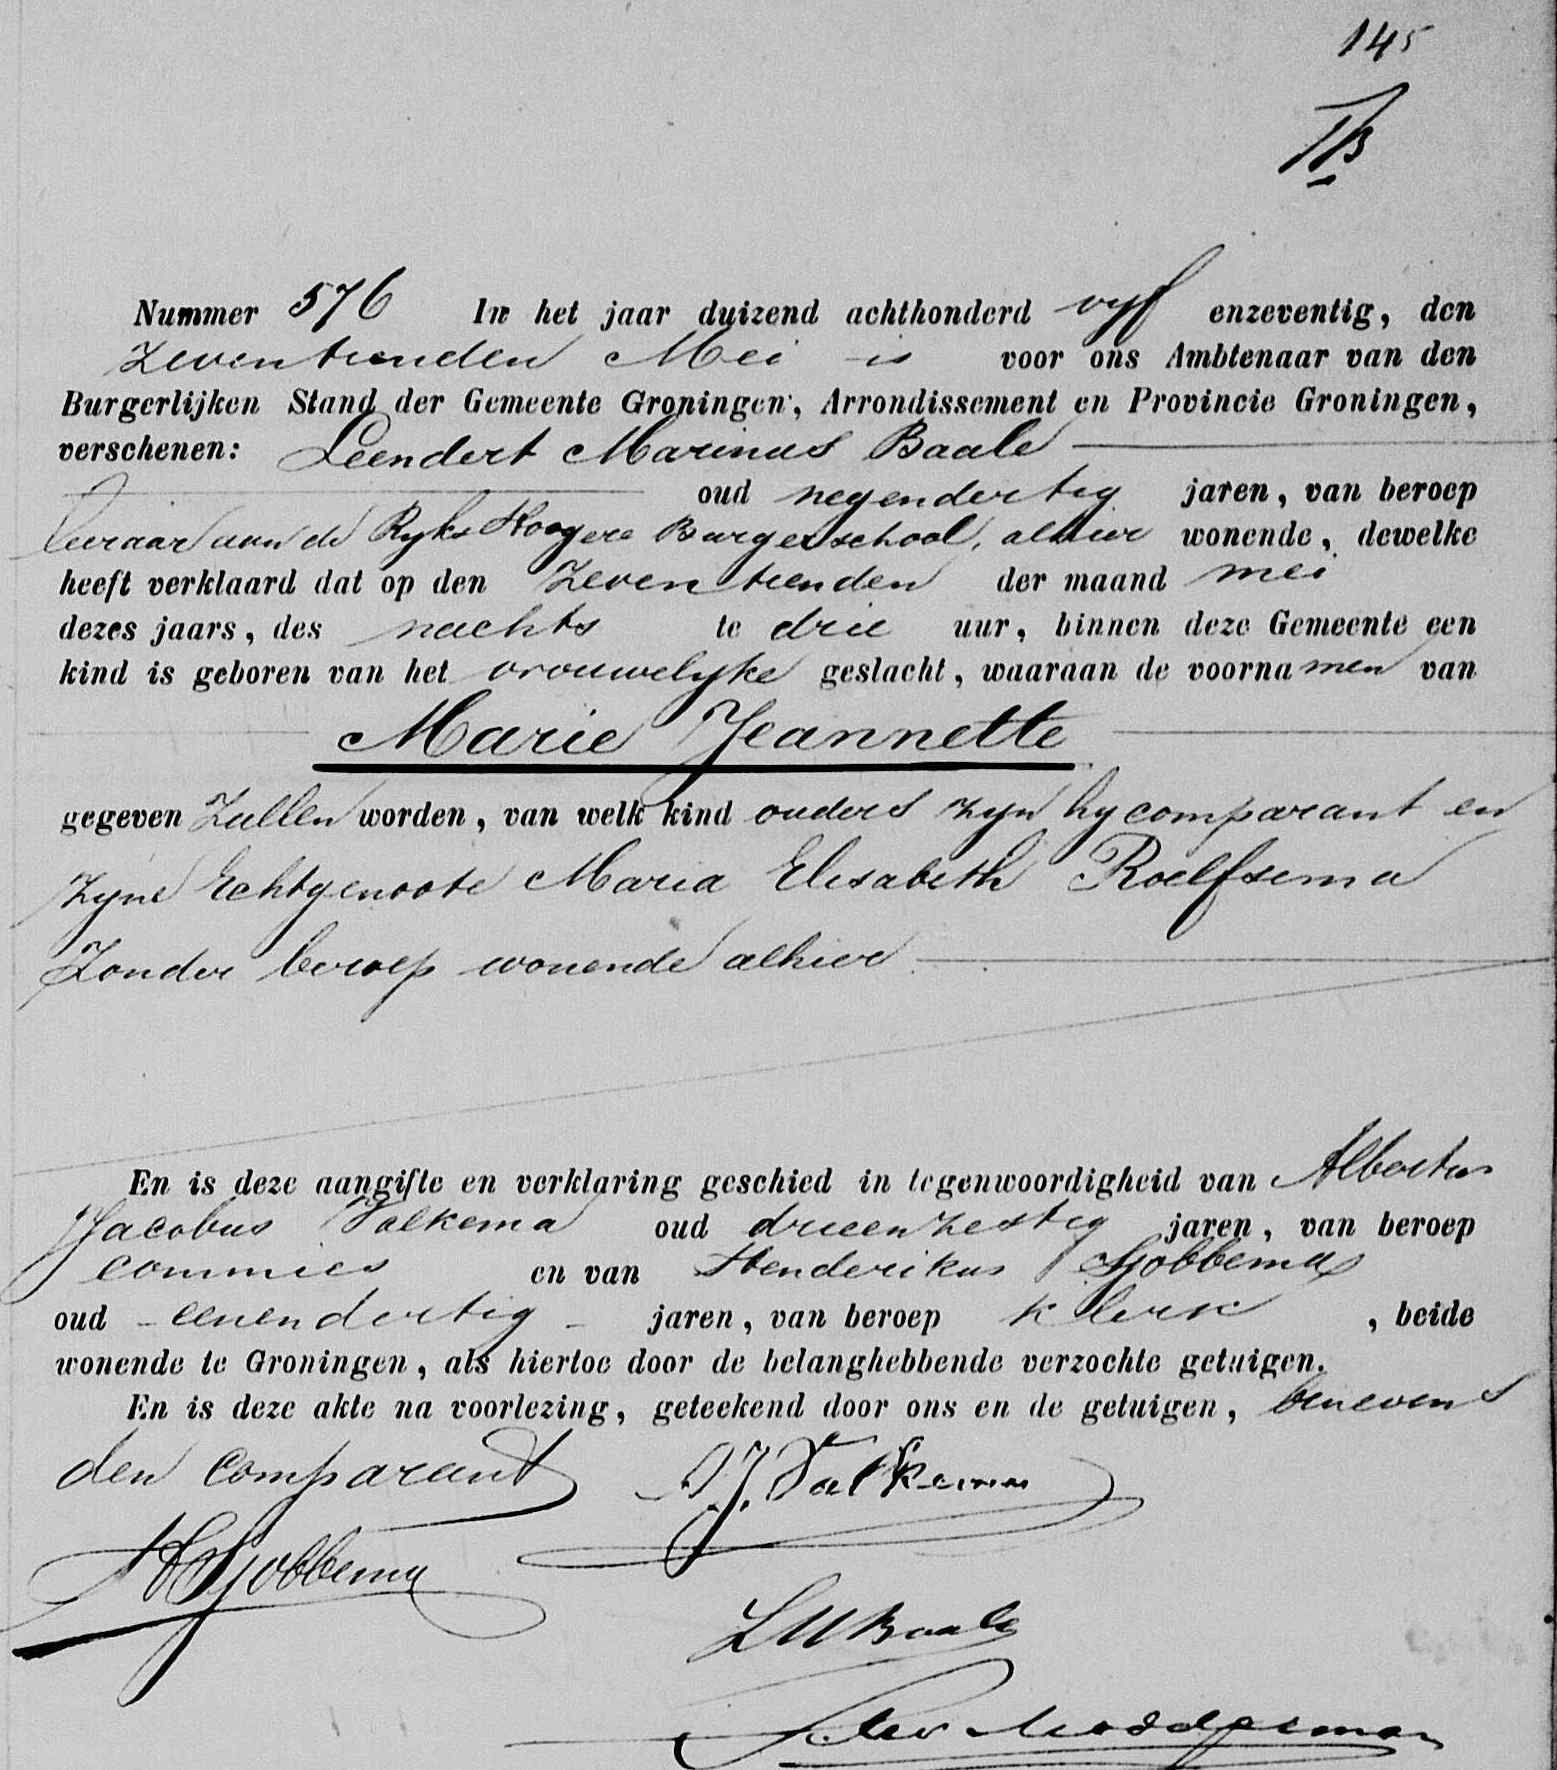 145
Nummer 576 In het jaar duizend achthonderd vyf enzeventig, den
zeventienden Mei is voor ons Ambtenaar van den
Burgerlijken Stand der Gemeente Groningen, Arrondissement en Provincie Groningen,
verschenen: Leendert Marinus Baale
oud negendertig jaren, van beroep
leeraar aan de Ryks Hoogere Burgerschool, alhier wonende, dewelke
heeft verklaard dat op den zeventienden der maand mei
dezes jaars, des nachts te drie uur, binnen deze Gemeente een
kind is geboren van het vrouwelyke geslacht, waaraan de voornamen van
Marie Jeannette
gegeven zullen worden, van welk kind ouders zyn hy comparant en
zyne Echtgenoote Maria Elisabeth Roelfsema
zonder beroep wonende alhier
En is deze aangifte en verklaring geschied in tegenwoordigheid van Albertus
Jacobus Valkema oud drieenzestig jaren, van beroep
commies en van Henderikus Sjobbema
oud eenendertig jaren, van beroep klerk, beide
wonende te Groningen, als hiertoe door de belanghebbende verzochte getuigen.
En is deze akte na voorlezing, geteekend door ons en de getuigen, benevens
den comparant AJ. Valkema
HSjobbema
LMBaale